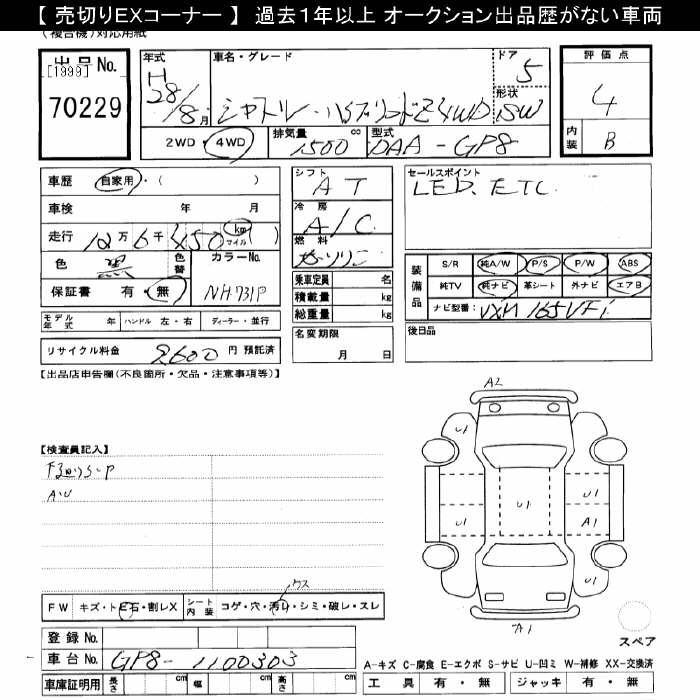 【 売切りEXコーナー 】 過去1年以上 オークション出品歴がない車両
(複合機)対応用紙
出品No.
[1999]
70229
年式 H 28/8月
車名・グレード シャトル・ハイブリッドZ4WD
ドア 5
形状 SW
評価点 4
内装 B
2WD・4WD
排気量 1500 cc
型式 DAA-GP8
車歴 自家用・( )
車検 年 月
走行 12万6千450 km マイル ( )
色 黒 色替
カラーNo. NH731P
保証書 有・無
シフト AT
冷房 A/C
燃料 ガソリン
乗車定員 名
積載量 kg
総重量 kg
セールスポイント
LED. ETC
装備品
S/R 純A/W P/S P/W ABS
純TV 純ナビ 革シート 外ナビ エアB
ナビ型番: VXM 165VFi
モデル年式 年 ハンドル 左・右 ディーラー・並行
名変期限 月 日
後日品
リサイクル料金 9600 円 預託済
【出品店申告欄(不良箇所・欠品・注意事項等)】
【検査員記入】
下廻りS・P
A・U
A2
U1
U1
U1
U1
U1
A1
U1
A1
スペア
FW キズ・ト 石・割レX シート内装 コゲ・穴・汚レ・シミ・破レ・スレ
ウス
登録No.
車台No. GP8-1100303
A-キズ C-腐食 E-エクボ S-サビ U-凹ミ W-補修 XX-交換済
車庫証明用 長さ cm 幅 cm 高さ cm
工具 有・無 ジャッキ 有・無